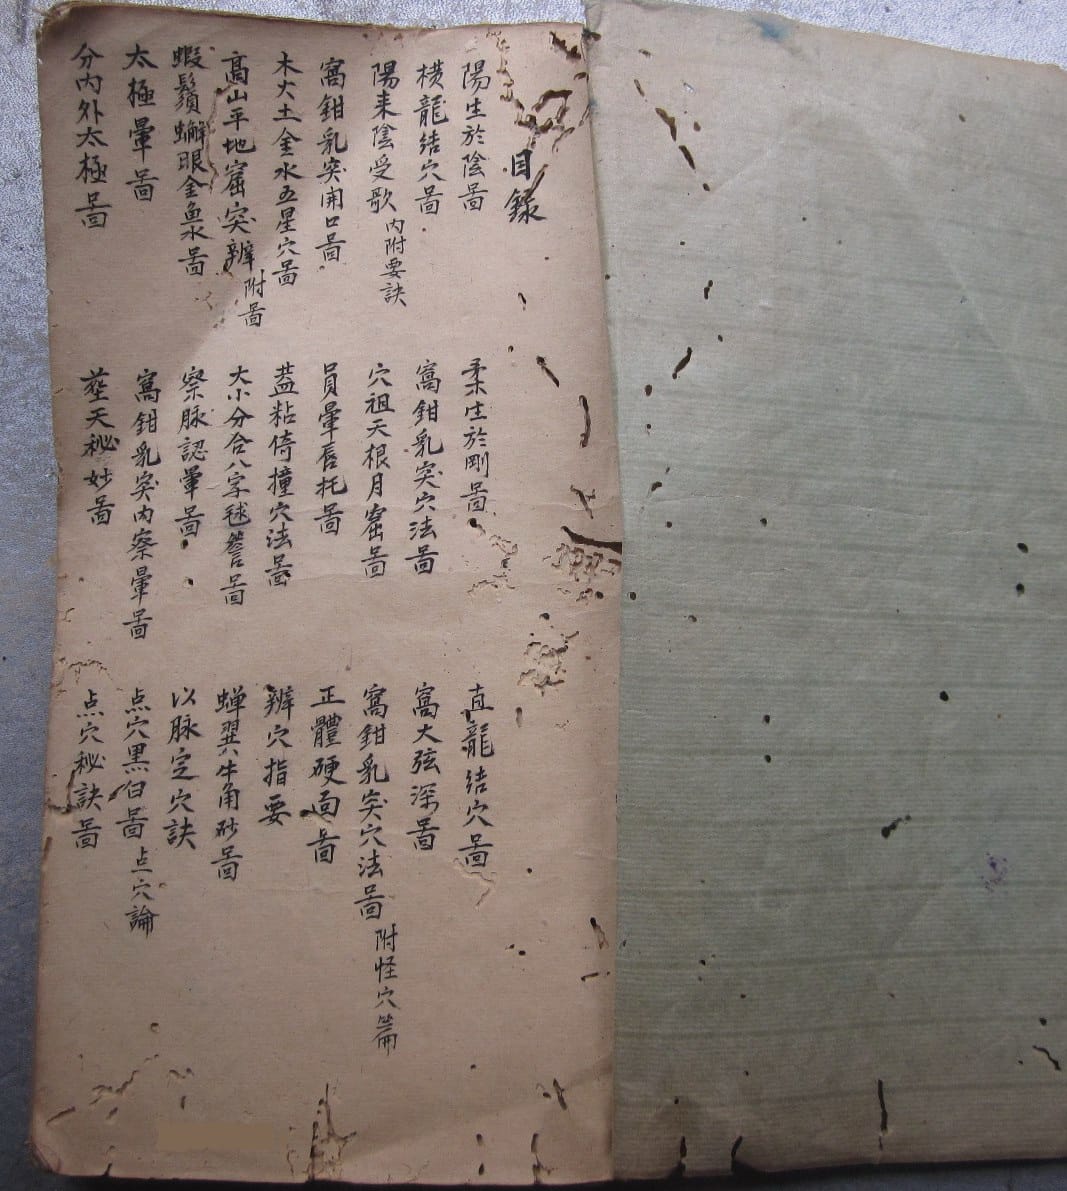 目錄
陽生於陰啚 柔生於剛啚 直龍結穴啚
橫龍結穴啚 窩鉗乳突穴法啚 窩大弦深啚
陽来陰受歌 內附要訣 穴祖天根月窟啚 窩鉗乳突穴法啚 附怪穴篇
窩鉗乳突開口啚 員暈唇托啚 正體硬面啚
木火土金水五星穴啚 蓋粘倚撞穴法啚 辨穴指要
高山平地窟突辨 附啚 大小分合八字毬簷啚 蝉翼牛角砂啚
蝦鬚蠏眼金魚水啚 察脉認暈啚 以脉定穴訣
太極暈啚 窩鉗乳突內察暈啚 点穴黑白啚 点穴論
分內外太極啚 天秘妙啚 点穴秘訣啚